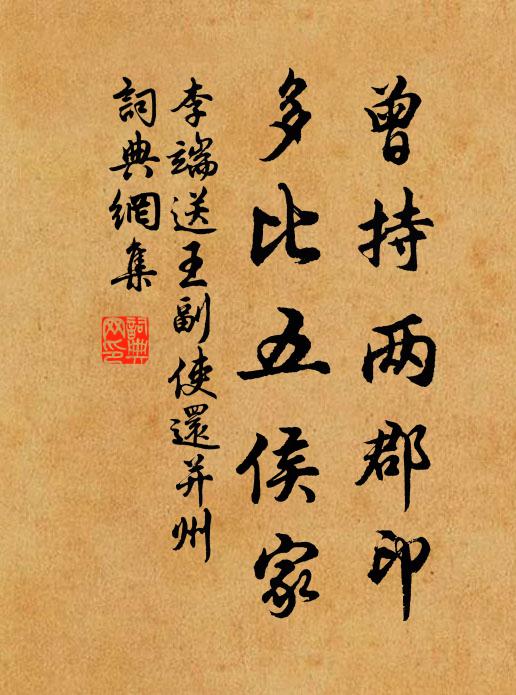 曾持两郡印
多比五侯家
李端送王副使還并州
詞典網集
詞典網印